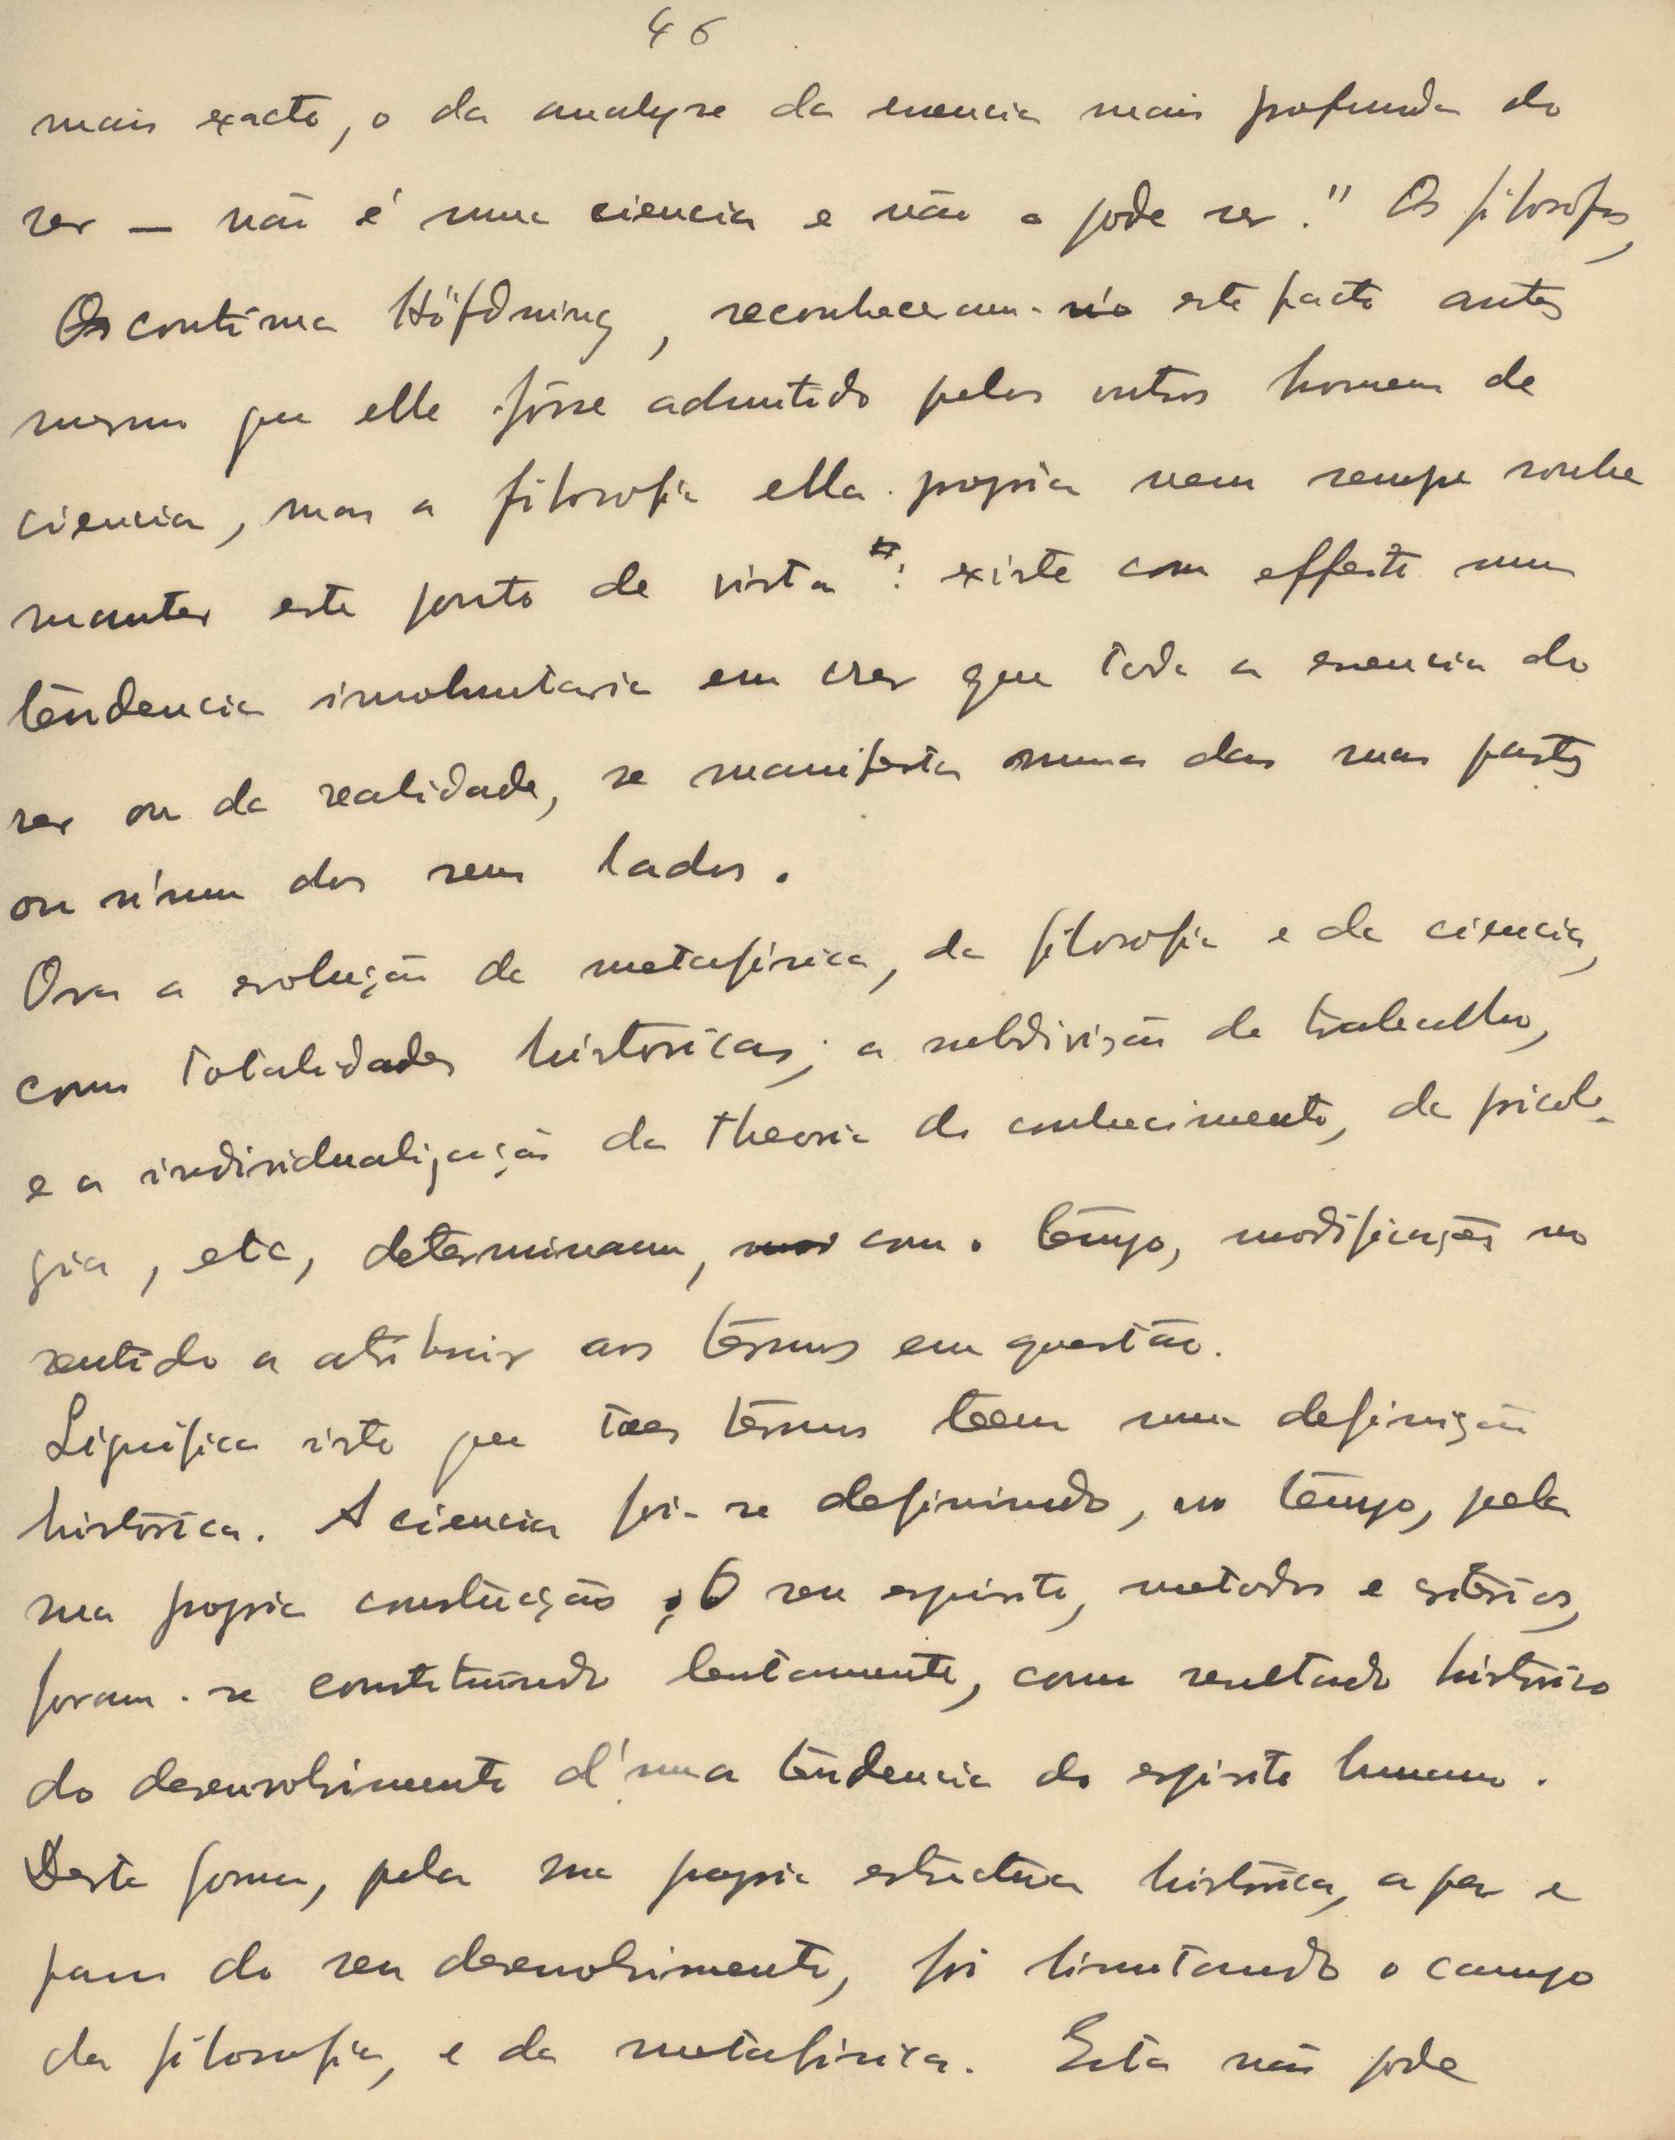 46
mais exacto, o da analyse da essencia mais profunda do
ser — não é uma ciencia e não o pode ser." Os filosofos,
continua Höfdning, reconheceram-no este facto antes
mesmo que elle fôsse admitido pelos outros homens de
ciencia, mas a filosofia ella propria nem sempre soube
manter este ponto de vista: existe com effeito uma
tendencia involuntaria em crer que toda a essencia do
ser ou da realidade, se manifesta numa das suas partes
ou n'um dos seus lados.
Ora a evolução da metafisica, da filosofia e da ciencia,
como totalidades historicas; a subdivisão de trabalho,
e a individualização da theoria do conhecimento, da psicolo-
gia, etc, determinam, com o tempo, modificações no
sentido a atribuir aos têrmos em questão.
Significa isto que taes têrmos teem uma definição
historica. A ciencia foi-se definindo, no tempo, pela
sua propria construcção; O seu espirito, metodos e criterios,
foram-se constituindo lentamente, como resultado histórico
do desenvolvimento d'uma tendencia do espirito humano.
Desta forma, pela sua propria estructura histórica, a par e
passo do seu desenvolvimento, foi limitando o campo
da filosofia, e da metafisica. Esta não pode